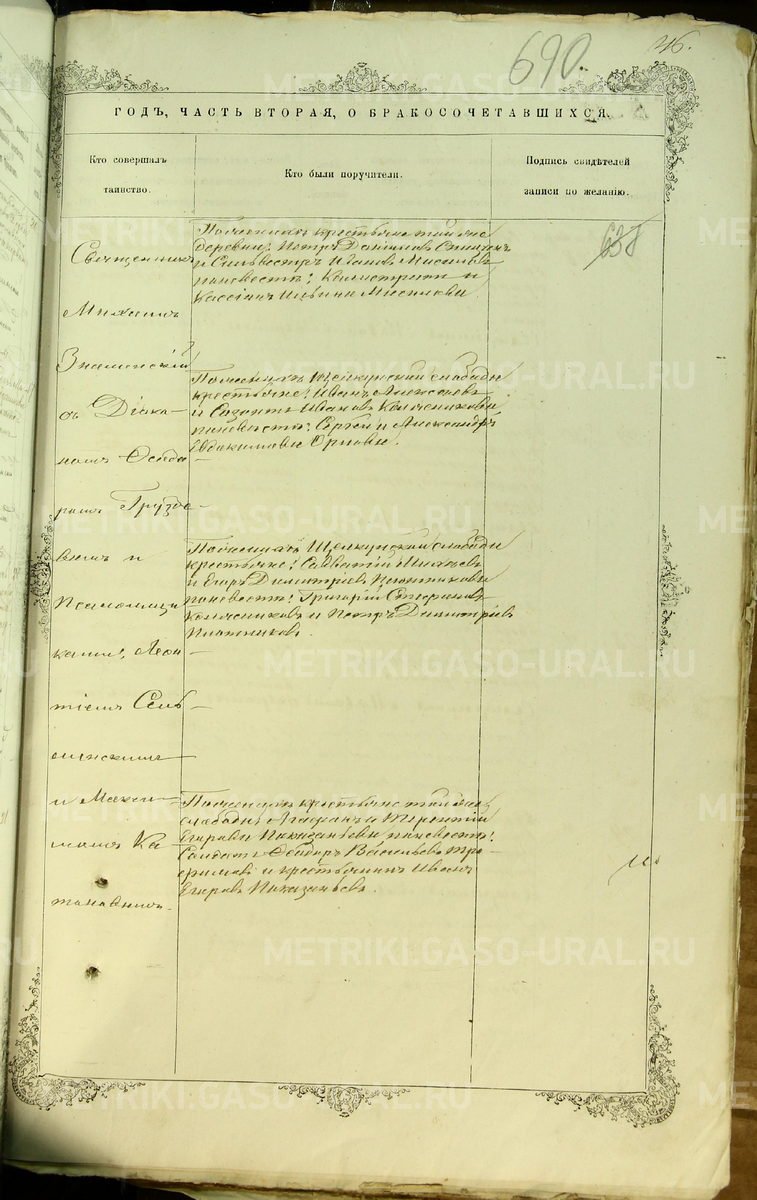 690.
46.
ГОДЪ, ЧАСТЬ ВТОРАЯ, О БРАКОСОЧЕТАВШИХСЯ.
Кто совершалъ
таинство.
Кто были поручители.
Подпись свидѣтелей
записи по желанію.
638
Священникъ
Михаилъ
Знаменскій
съ Діако-
номъ Ѳеодо-
ромъ Грузде-
вымъ и
Псаломщи
ками: Леон-
тіемъ Сель-
менскимъ
и Макси-
момъ Ка-
тановымъ.
По женихѣ крестьяне той же
деревни: Петръ Даниловъ
и Сильвестръ Ивановъ
по невестѣ: Калистратъ и
Кассіанъ Ильины
По женихѣ Щелкунской слободы
крестьяне: Иванъ Алексѣевъ
и Созонтъ Ивановъ Колчениковы
по невестѣ: Сергѣй и Александръ
Евдокимовы Орловы.
По женихѣ Щелкунской слободы
крестьяне: Савватій
и Егоръ Димитріевъ
по невестѣ: Григорій Стефановъ
и Петръ Димитріевъ
Плотниковъ.
По женихѣ крестьяне той же
слободы Агафонъ и Терентій
Егоровы по невестѣ:
Солдатъ Ѳедоръ Васильевъ Тро-
фимовъ и крестьянинъ Иванъ
Егоровъ
METRIKI.GASO-URAL.RU